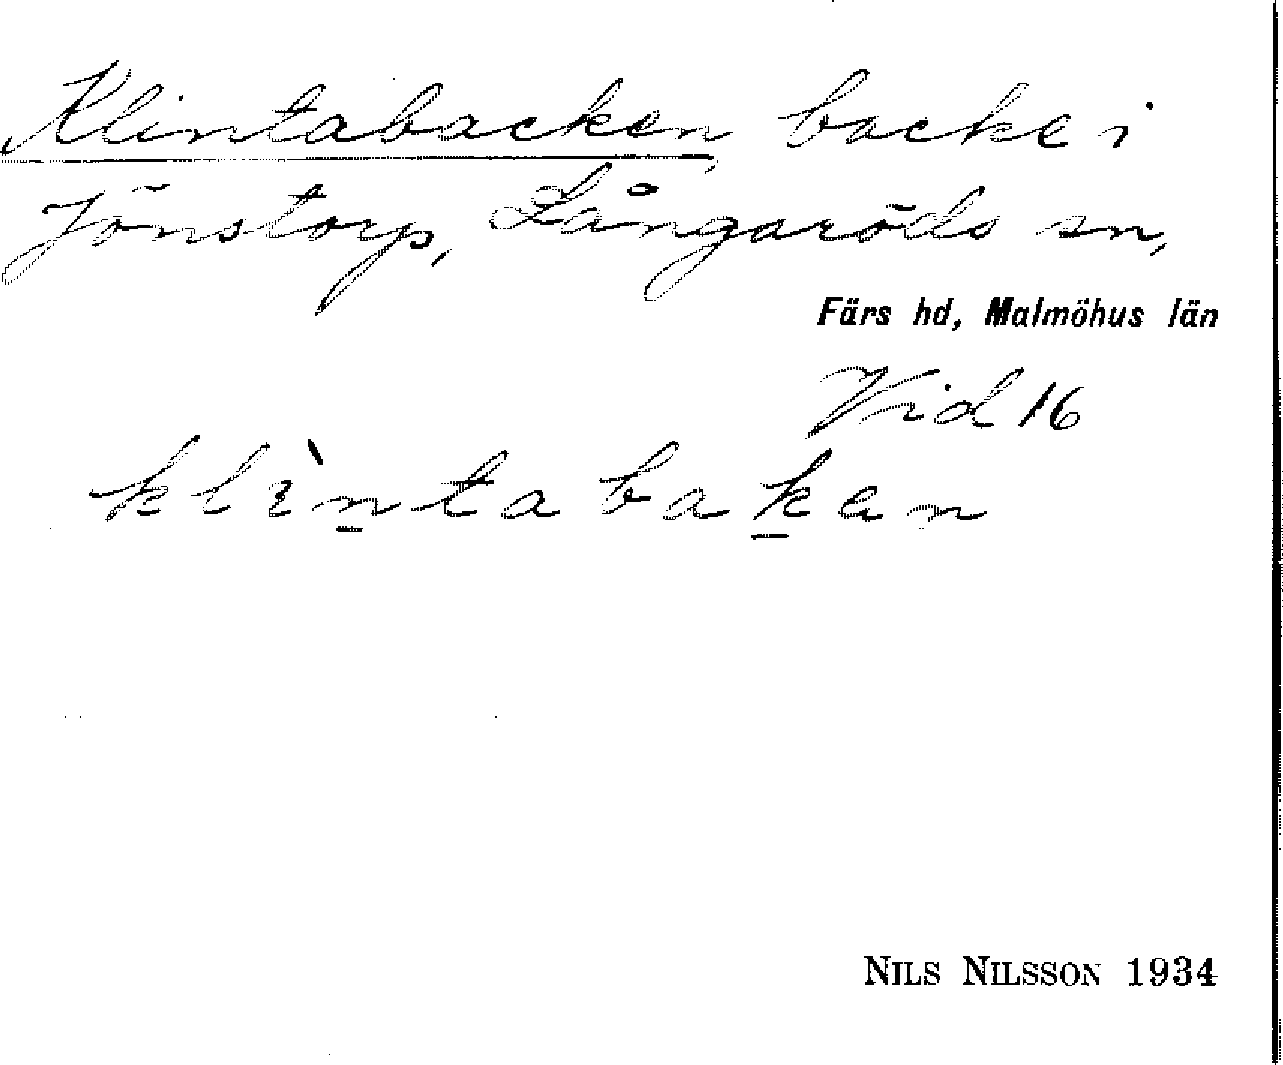 Klintabacken backe i
Jönstorp, Långaröds sn,
Färs hd, Malmöhus län
Vid 16
klìn̲tabak̲en
NILS NILSSON 1934